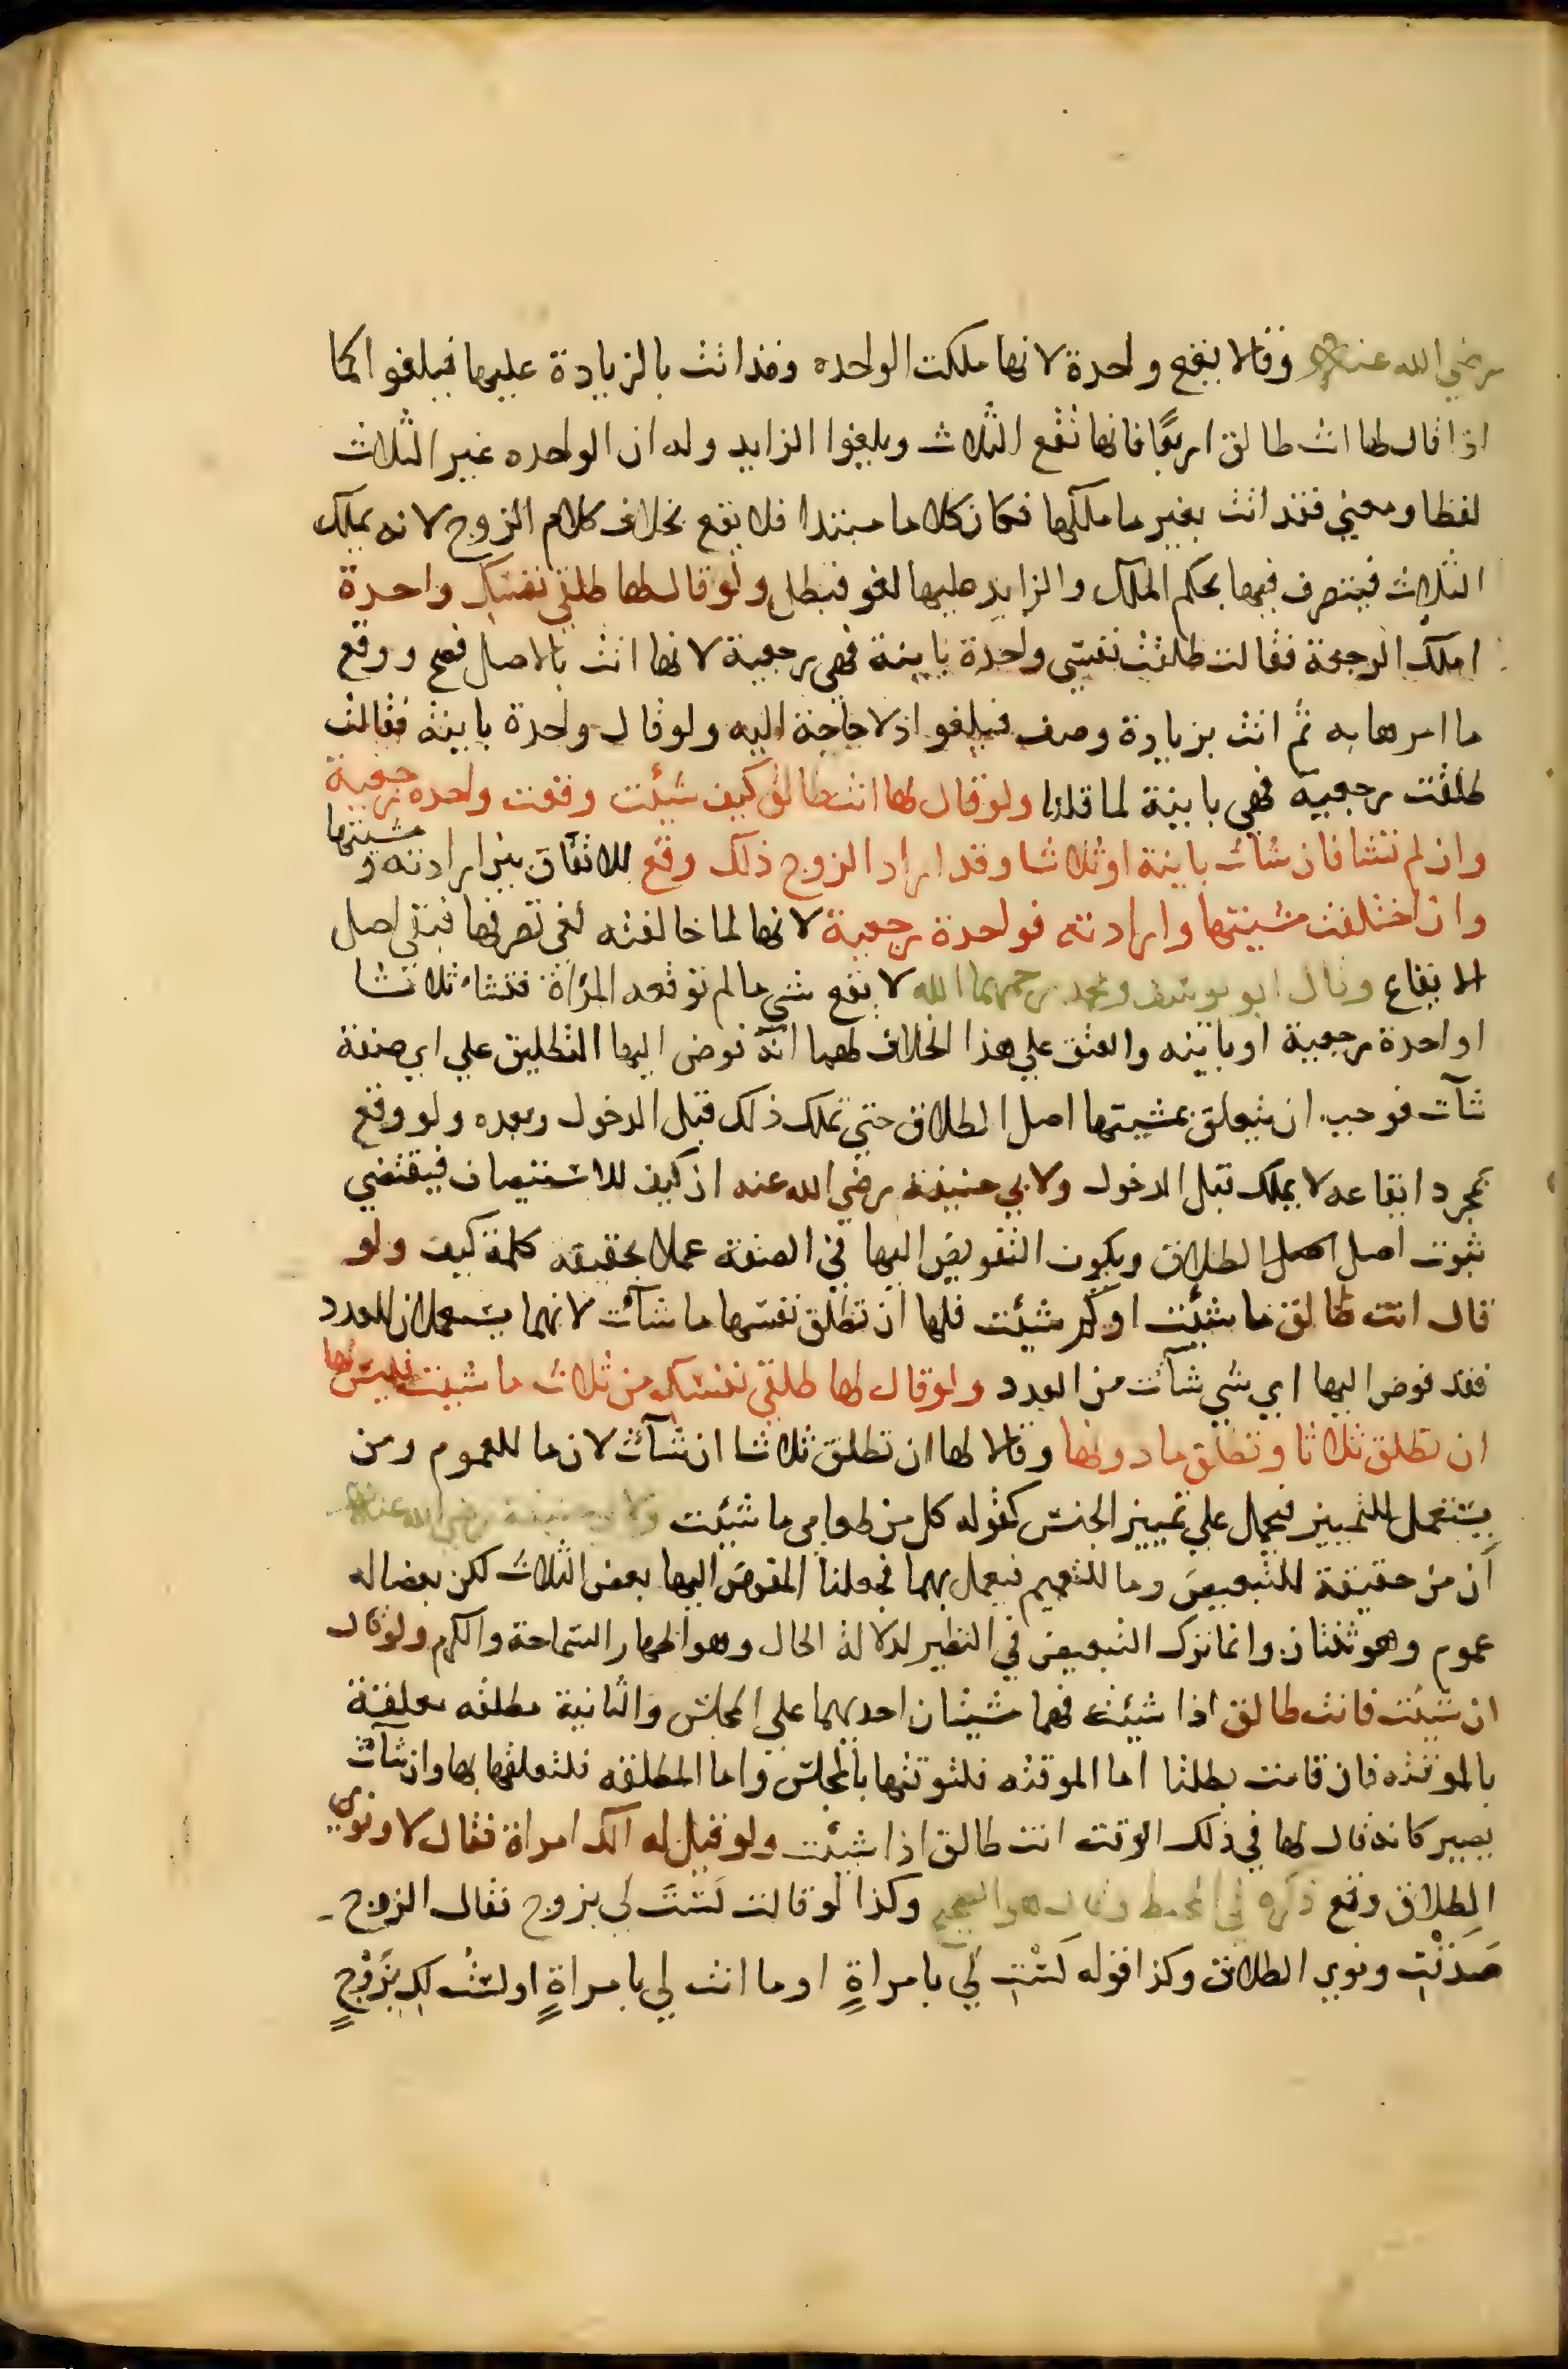 رضي الله عنه وقالا يقع واحدة لانها ملكت الواحده وقد اتت بالزيادة عليها فيلغوا كما
اذا قال لها انت طالق اربعًا فانها تقع الثلاث ويلغوا الزايد وله ان الواحده غير الثلاث
لفظا ومعني فقد اتت بغير ما ملكها فكان كلاما مبتدا فلا يقع بخلاف كلام الزوج لانه يملك
الثلاث فيتصرف فيها بحكم الملك والزايد عليها لغو فبطل ولو قال لها طلقي نفسك واحدة
املك الرجعة فقالت طلقت نفسي واحدة باينة فهي رجعية لانها اتت بالاصل فصح ووقع
ما امرها به ثم اتت بزيادة وصف فيلغوا اذ لا حاجة اليه ولو قال واحدة باينة فقالت
طلقت رجعية فهي باينة لما قلنا ولو قال لها انت طالق كيف شيئت وقعت واحده رجعية
وان لم تشا فان شات باينة او ثلاثا وقد اراد الزوج ذلك وقع للاتفاق بين ارادته ومشيتها
وان اختلفت مشيتها وارادته فواحدة رجعية لانها لما خالفته لغي تصرفها فبقي اصل
الايقاع وقال ابو يوسف ومحمد رحمهما الله لا يقع شي ما لم توقعه المرأة فتشاء ثلاثا
او احدة رجعية او باينه والعتق علي هذا الخلاف لهما انه فوض اليها التطليق علي اي صفة
شآت فوجب ان يتعلق بمشيتها اصل الطلاق حتي تملك ذلك قبل الدخول وبعده ولو وقع
بمجرد ايقاعه لا يملك قبل الدخول ولابي حنيفة رضي الله عنه ان كيف للاستيصاف فيقتضي
ثبوت اصل اصل الطلاق ويكون التفويض اليها في الصفة عملا بحقيقه كلمة كيف ولو
قال انت طالق ما شيئت او كم شيئت فلها ان تطلق نفسها ما شآئت لانهما يستعملان للعدد
فقد فوض اليها اي شي شآئت من العدد ولو قال لها طلقي نفسك من ثلاث ما شيت فليس لها
ان تطلق ثلاثا وتطلق ما دونها وقالا لها ان تطلق ثلاثا ان شآئت لان ما للعموم ومن
يستعمل للتمييز فيحمل علي تمييز الجنس كقوله كل من طعامي ما شيئت ولابي حنيفة رضي الله عنه
أن من حقيقة للتبعيض وما للتعميم فيعمل بهما فجعلنا المفوض اليها بعض الثلاث لكن بعضا له
عموم وهو ثنتان وانما ترك التبعيض في النظير لدلالة الحال وهو اظهار السماحة والكرم ولو قال
ان شيئت فانت طالق اذا شيئت فهما مشيتان احديهما علي المجلس والثانية مطلقه معلقة
بالموقته فان قامت بطلتا اما الموقته فلتوقتها بالمجلس واما المطلقه فلتعلقها بها وان شآت
يصير كانه قال لها في ذلك الوقت انت طالق اذا شيئت ولو قيل له الك امراة فقال لا ونوي
الطلاق وقع ذكره في المحيط وقال هو الصحيح وكذا لو قالت لَسْتَ لي بزوج فقال الزوج
صَدَقْتِ ونوي الطلاق وكذا قوله لَسْتِ لي بامراةٍ او ما انت لي بامراةٍ او لست لكِ بزَوْجٍ